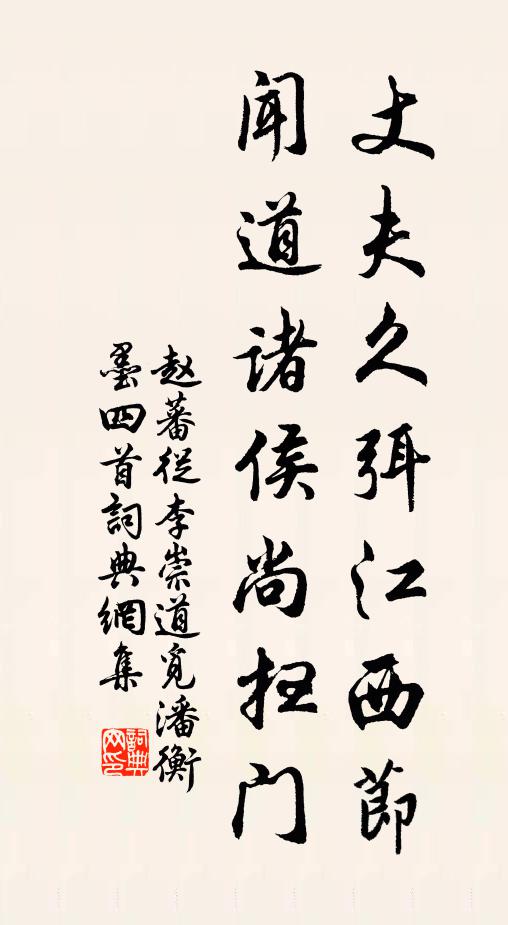 丈夫久弭江西節
闻道诸侯尚抂门
赵蕃從李崇道覓潘衡
墨四首詞典網集
詞典网印